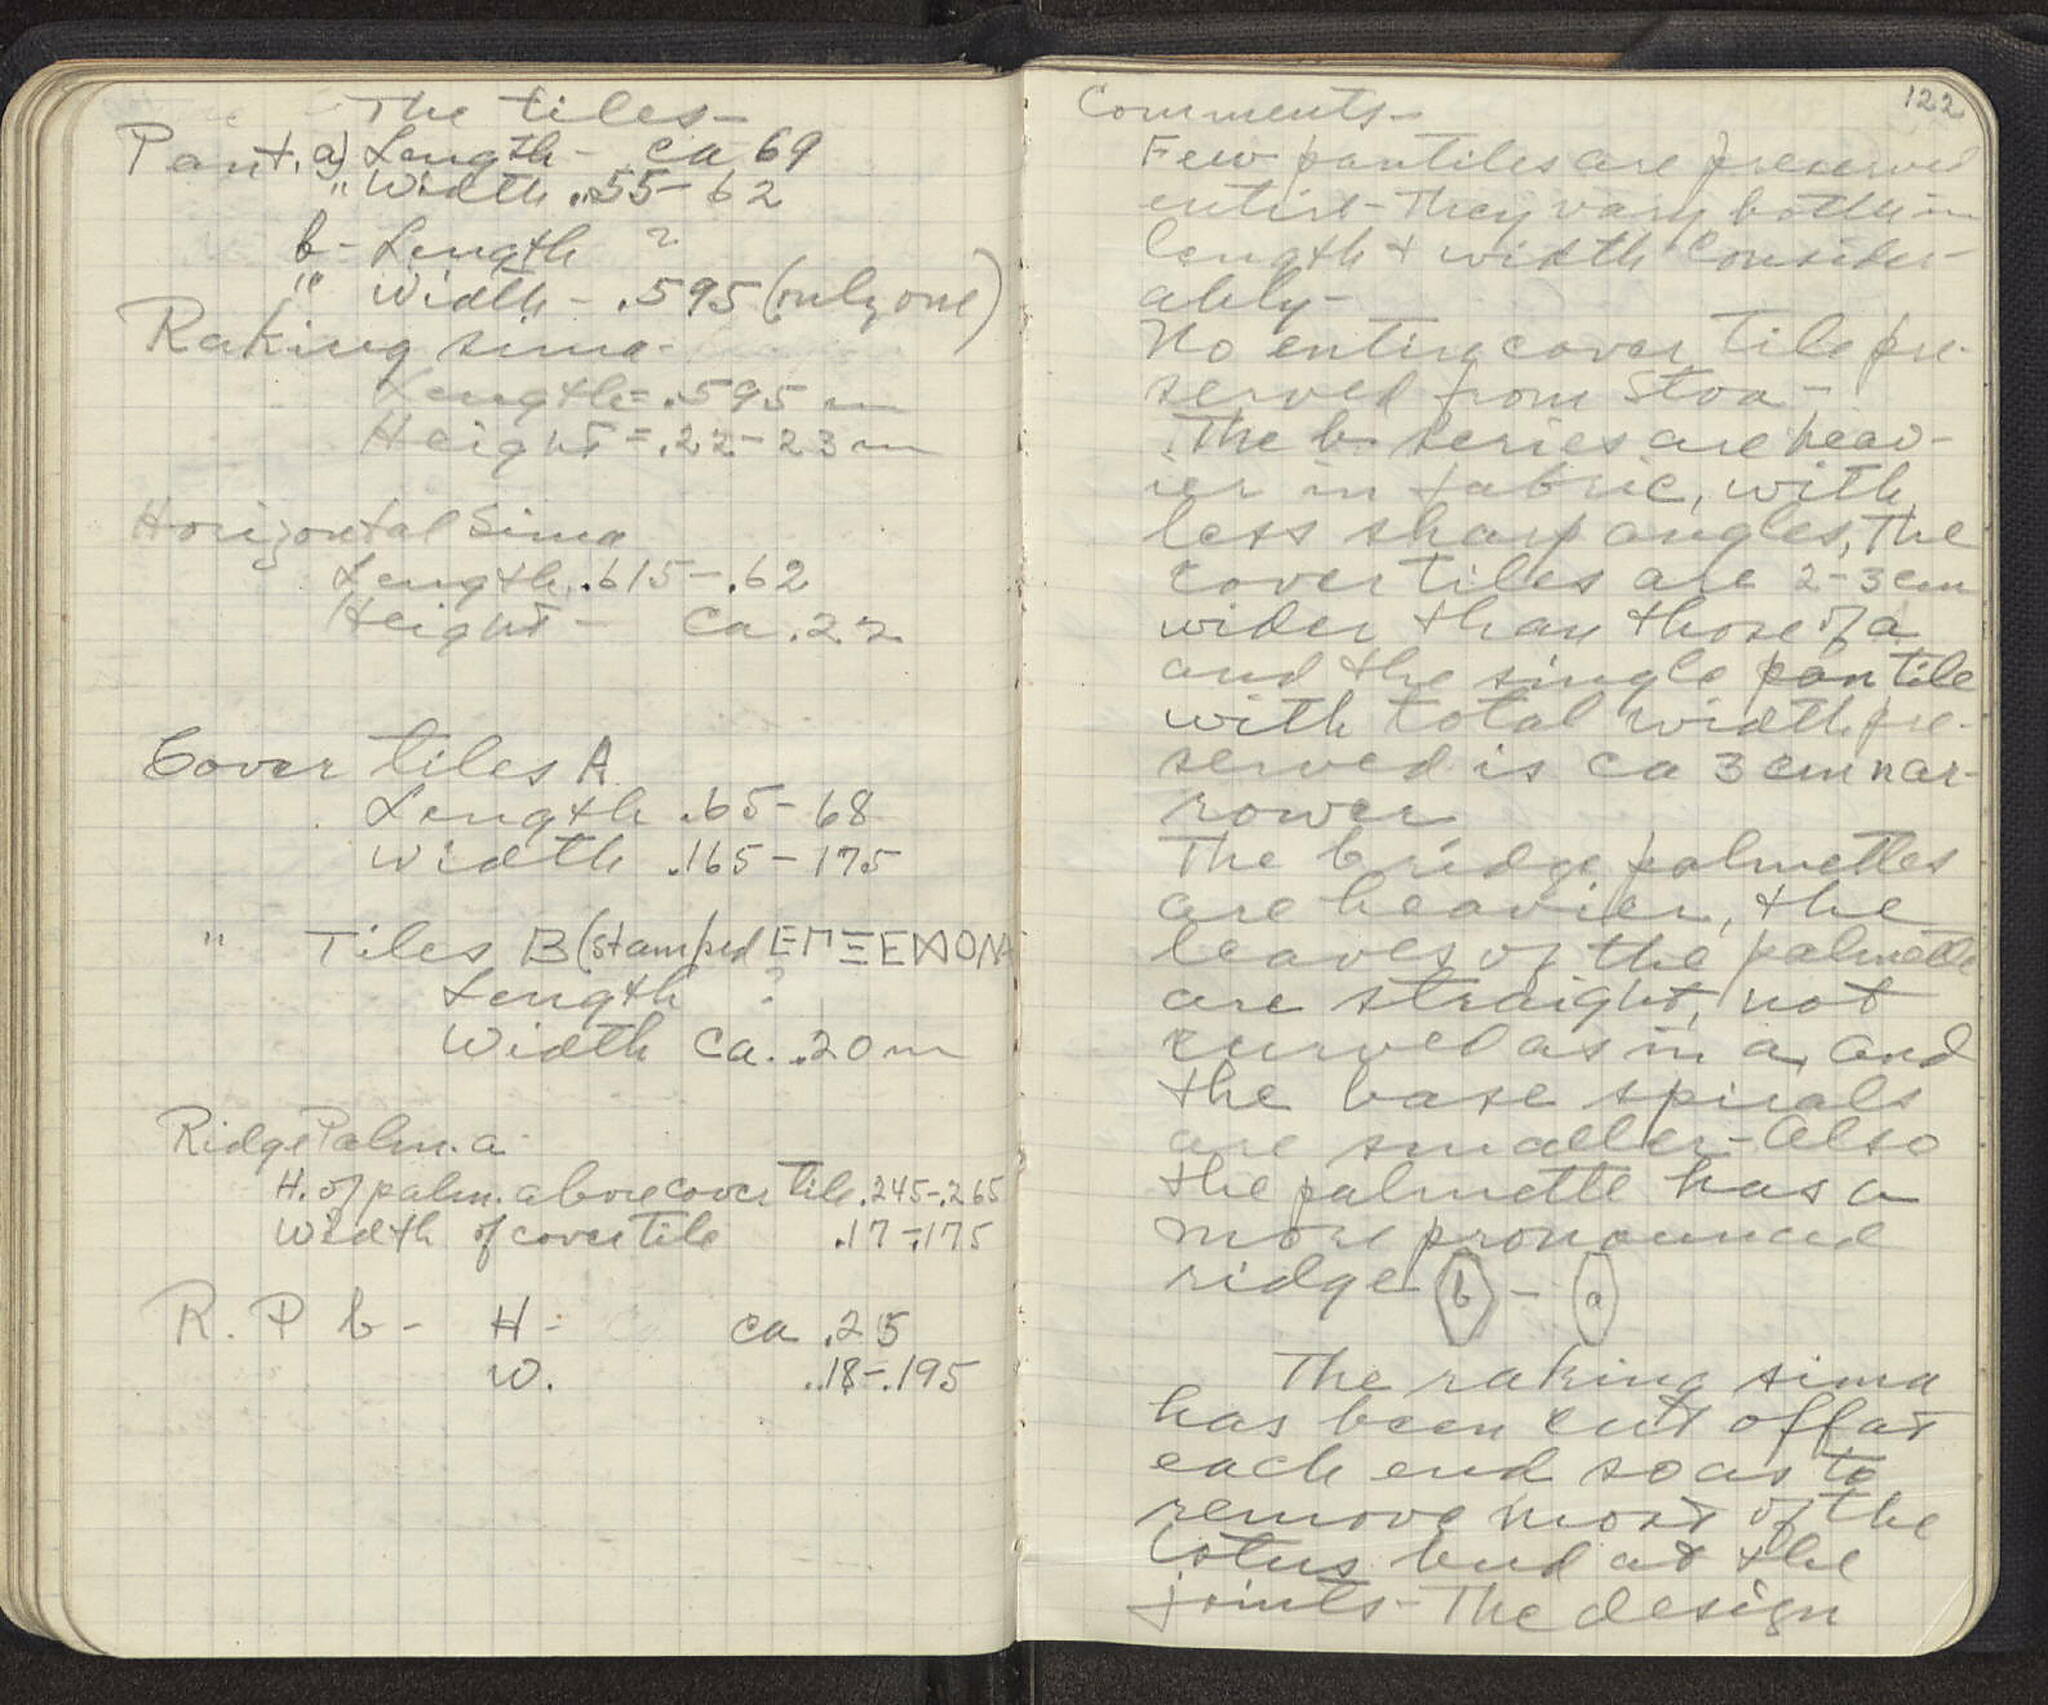 The tiles-
Pant. a) Length - ca 69
" Width .55-62
b- Length ?
" Width - .595 (only one)
Raking sima-
Length = .595 m
Height = .22-23 m
Horizontal Sima
Length .615-.62
Height - ca .22
Cover tiles A
Length .65-68
Width .165-175
" Tiles B (stamped ΕΠΞΕ
Length ?
Width ca. .20 m
Ridge Palm. a-
H. of palm. above cover tile .245-.265
Width of cover tile .17-.175
R. P b- H- ca .25
W. .18-.195
122
Comments-
Few pantiles are preserved
entire- They vary both in
length + width consider-
ably-
No entire cover tile pre-
served from Stoa-
The b series are heav-
ier in fabric, with
less sharp angles, the
cover tiles are 2-3 cm
wider than those of a
and the single pan tile
with total width pre-
served is ca 3 cm nar-
rower
The b ridge palmettes
are heavier, the
leaves of the palmette
are straight, not
curved as in a, and
the base spirals
are smaller- Also
the palmette has a
more pronounced
ridge b - a
The raking sima
has been cut off at
each end so as to
remove most of the
lotus bud at the
joints- The design